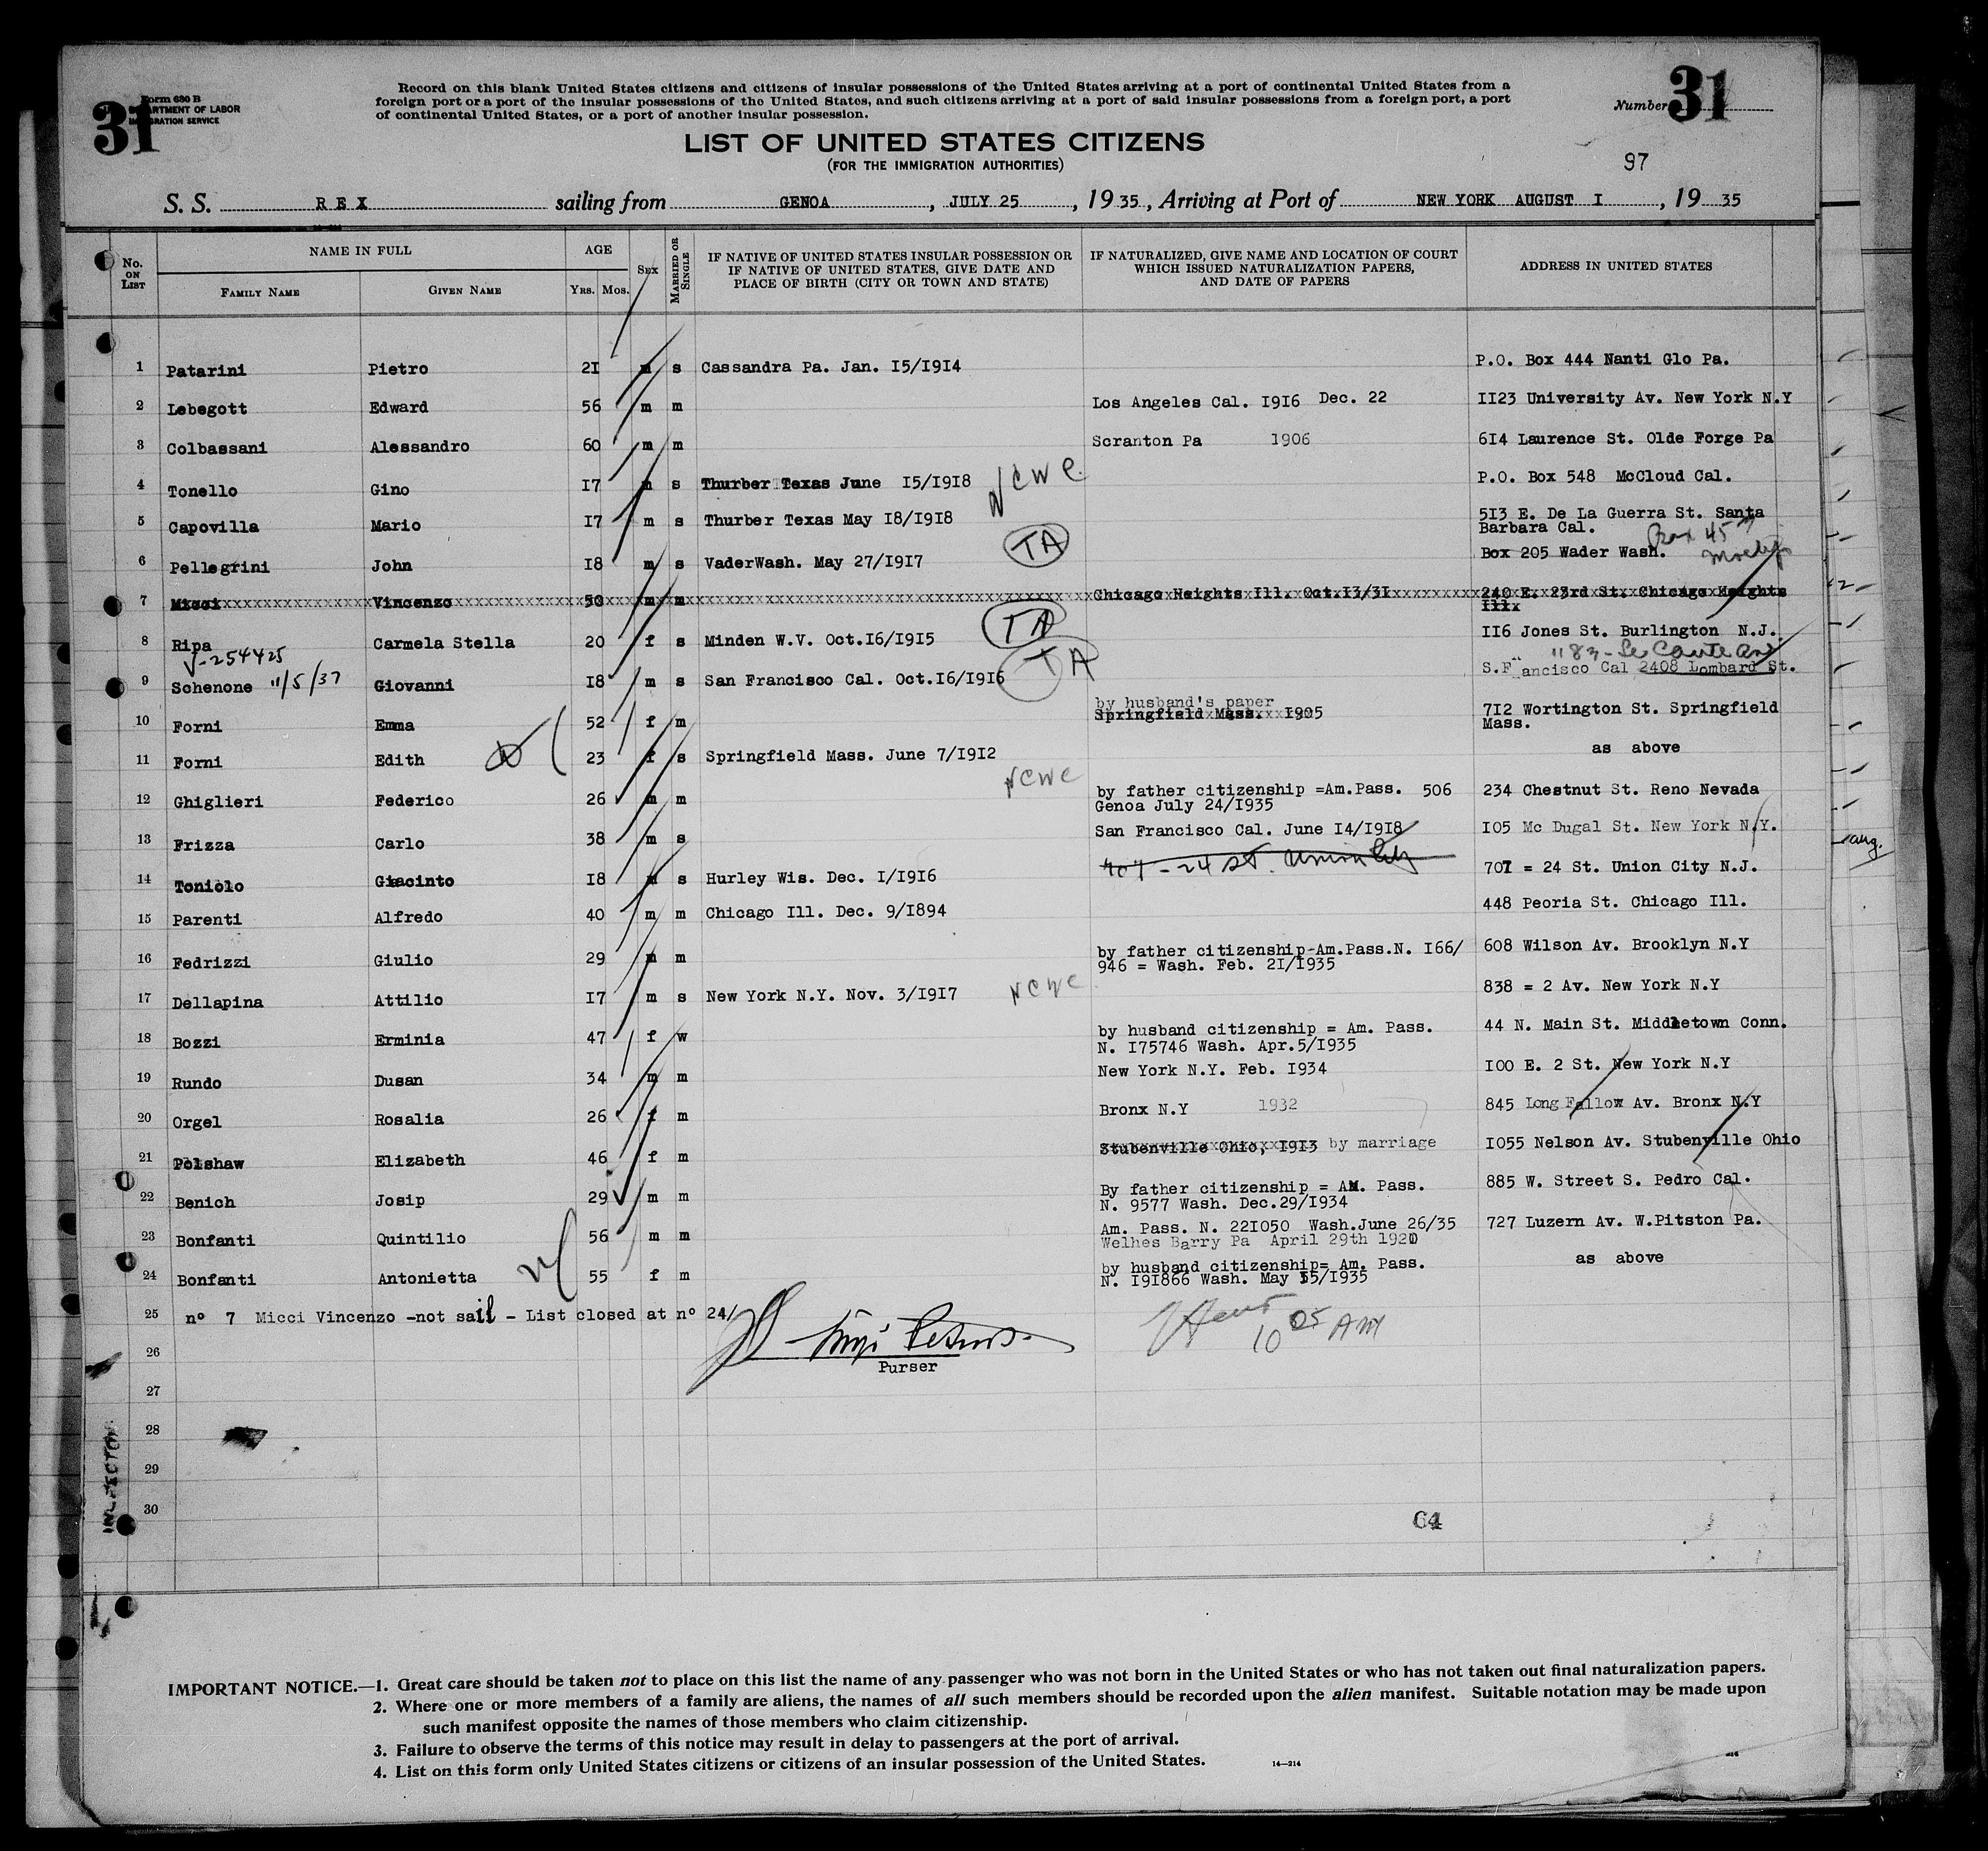 31
Form 630 B
DEPARTMENT OF LABOR
IMMIGRATION SERVICE
Record on this blank United States citizens and citizens of insular possessions of the United States arriving at a port of continental United States from a
foreign port or a port of the insular possessions of the United States, and such citizens arriving at a port of said insular possessions from a foreign port, a port
of continental United States, or a port of another insular possession.
Number 31
LIST OF UNITED STATES CITIZENS
(FOR THE IMMIGRATION AUTHORITIES)
97
S. S. REX sailing from GENOA, JULY 25, 1935, Arriving at Port of NEW YORK AUGUST I, 1935
No. ON LIST
NAME IN FULL
FAMILY NAME GIVEN NAME
AGE
YRS. MOS.
SEX
MARRIED OR SINGLE
IF NATIVE OF UNITED STATES INSULAR POSSESSION OR
IF NATIVE OF UNITED STATES, GIVE DATE AND
PLACE OF BIRTH (CITY OR TOWN AND STATE)
IF NATURALIZED, GIVE NAME AND LOCATION OF COURT
WHICH ISSUED NATURALIZATION PAPERS,
AND DATE OF PAPERS
ADDRESS IN UNITED STATES
1 Patarini Pietro 2I m s Cassandra Pa. Jan. I5/I9I4 P.O. Box 444 Nanti Glo Pa.
2 Lebegott Edward 56 m m Los Angeles Cal. I9I6 Dec. 22 II23 University Av. New York N.Y
3 Colbassani Alessandro 60 m m Scranton Pa 1906 6I4 Laurence St. Olde Forge Pa
4 Tonello Gino I7 m s Thurber Texas June I5/I9I8 NCWC P.O. Box 548 McCloud Cal.
5 Capovilla Mario I7 m s Thurber Texas May I8/I9I8 5I3 E. De La Guerra St. Santa
Barbara Cal.
6 Pellegrini John I8 m s VaderWash. May 27/I9I7 TA Box 205 Wader Wash. Box 45
7 Micci Vincenzo 50 m m Chicago Heights Ill. Oct.I3/3I 240 E. 23rd St. Chicago Heights
Ill.
8 Ripa Carmela Stella 20 f s Minden W.V. Oct.I6/I9I5 TA II6 Jones St. Burlington N.J.
V-254425
9 Schenone 11/5/37 Giovanni I8 m s San Francisco Cal. Oct.I6/I9I6 TA S.Francisco Cal 2408 Lombard St.
10 Forni Emma 52 f m by husband's paper
Springfield Mass. I905 7I2 Wortington St. Springfield
Mass.
11 Forni Edith 23 f s Springfield Mass. June 7/I9I2 as above
NCWC
12 Ghiglieri Federico 26 m m by father citizenship =Am.Pass. 506
Genoa July 24/I935 234 Chestnut St. Reno Nevada
13 Frizza Carlo 38 m s San Francisco Cal. June I4/I9I8 I05 Mc Dugal St. New York N.Y.
aug.
707 - 24 St. Union City
14 Toniolo Giacinto I8 m s Hurley Wis. Dec. I/I9I6 707 = 24 St. Union City N.J.
15 Parenti Alfredo 40 m m Chicago Ill. Dec. 9/I894 448 Peoria St. Chicago Ill.
16 Fedrizzi Giulio 29 m m by father citizenship-Am.Pass.N. I66/
946 = Wash. Feb. 2I/I935 608 Wilson Av. Brooklyn N.Y
17 Dellapina Attilio I7 m s New York N.Y. Nov. 3/I9I7 NCWC 838 = 2 Av. New York N.Y
18 Bozzi Erminia 47 f w by husband citizenship = Am. Pass.
N. I75746 Wash. Apr.5/I935 44 N. Main St. Middletown Conn.
19 Rundo Dusan 34 m m New York N.Y. Feb. I934 I00 E. 2 St. New York N.Y
20 Orgel Rosalia 26 f m Bronx N.Y 1932 845 Long Fallow Av. Bronx N.Y
21 Polshaw Elizabeth 46 f m Stubenville Ohio, I9I3 by marriage I055 Nelson Av. Stubenville Ohio
22 Benich Josip 29 m m By father citizenship = AM. Pass.
N. 9577 Wash. Dec.29/I934 885 W. Street S. Pedro Cal.
23 Bonfanti Quintilio 56 m m Am. Pass. N. 22I050 Wash.June 26/35
Welhes Barry Pa April 29th 1920 727 Luzern Av. W.Pitston Pa.
24 Bonfanti Antonietta 55 f m by husband citizenship= Am. Pass.
N. I9I866 Wash. May I5/I935 as above
25 n° 7 Micci Vincenzo -not sail - List closed at n° 24/
10 05 AM
26
Purser
27
28
29
30
C4
IMPORTANT NOTICE.—1. Great care should be taken not to place on this list the name of any passenger who was not born in the United States or who has not taken out final naturalization papers.
2. Where one or more members of a family are aliens, the names of all such members should be recorded upon the alien manifest. Suitable notation may be made upon
such manifest opposite the names of those members who claim citizenship.
3. Failure to observe the terms of this notice may result in delay to passengers at the port of arrival.
4. List on this form only United States citizens or citizens of an insular possession of the United States.
14—214